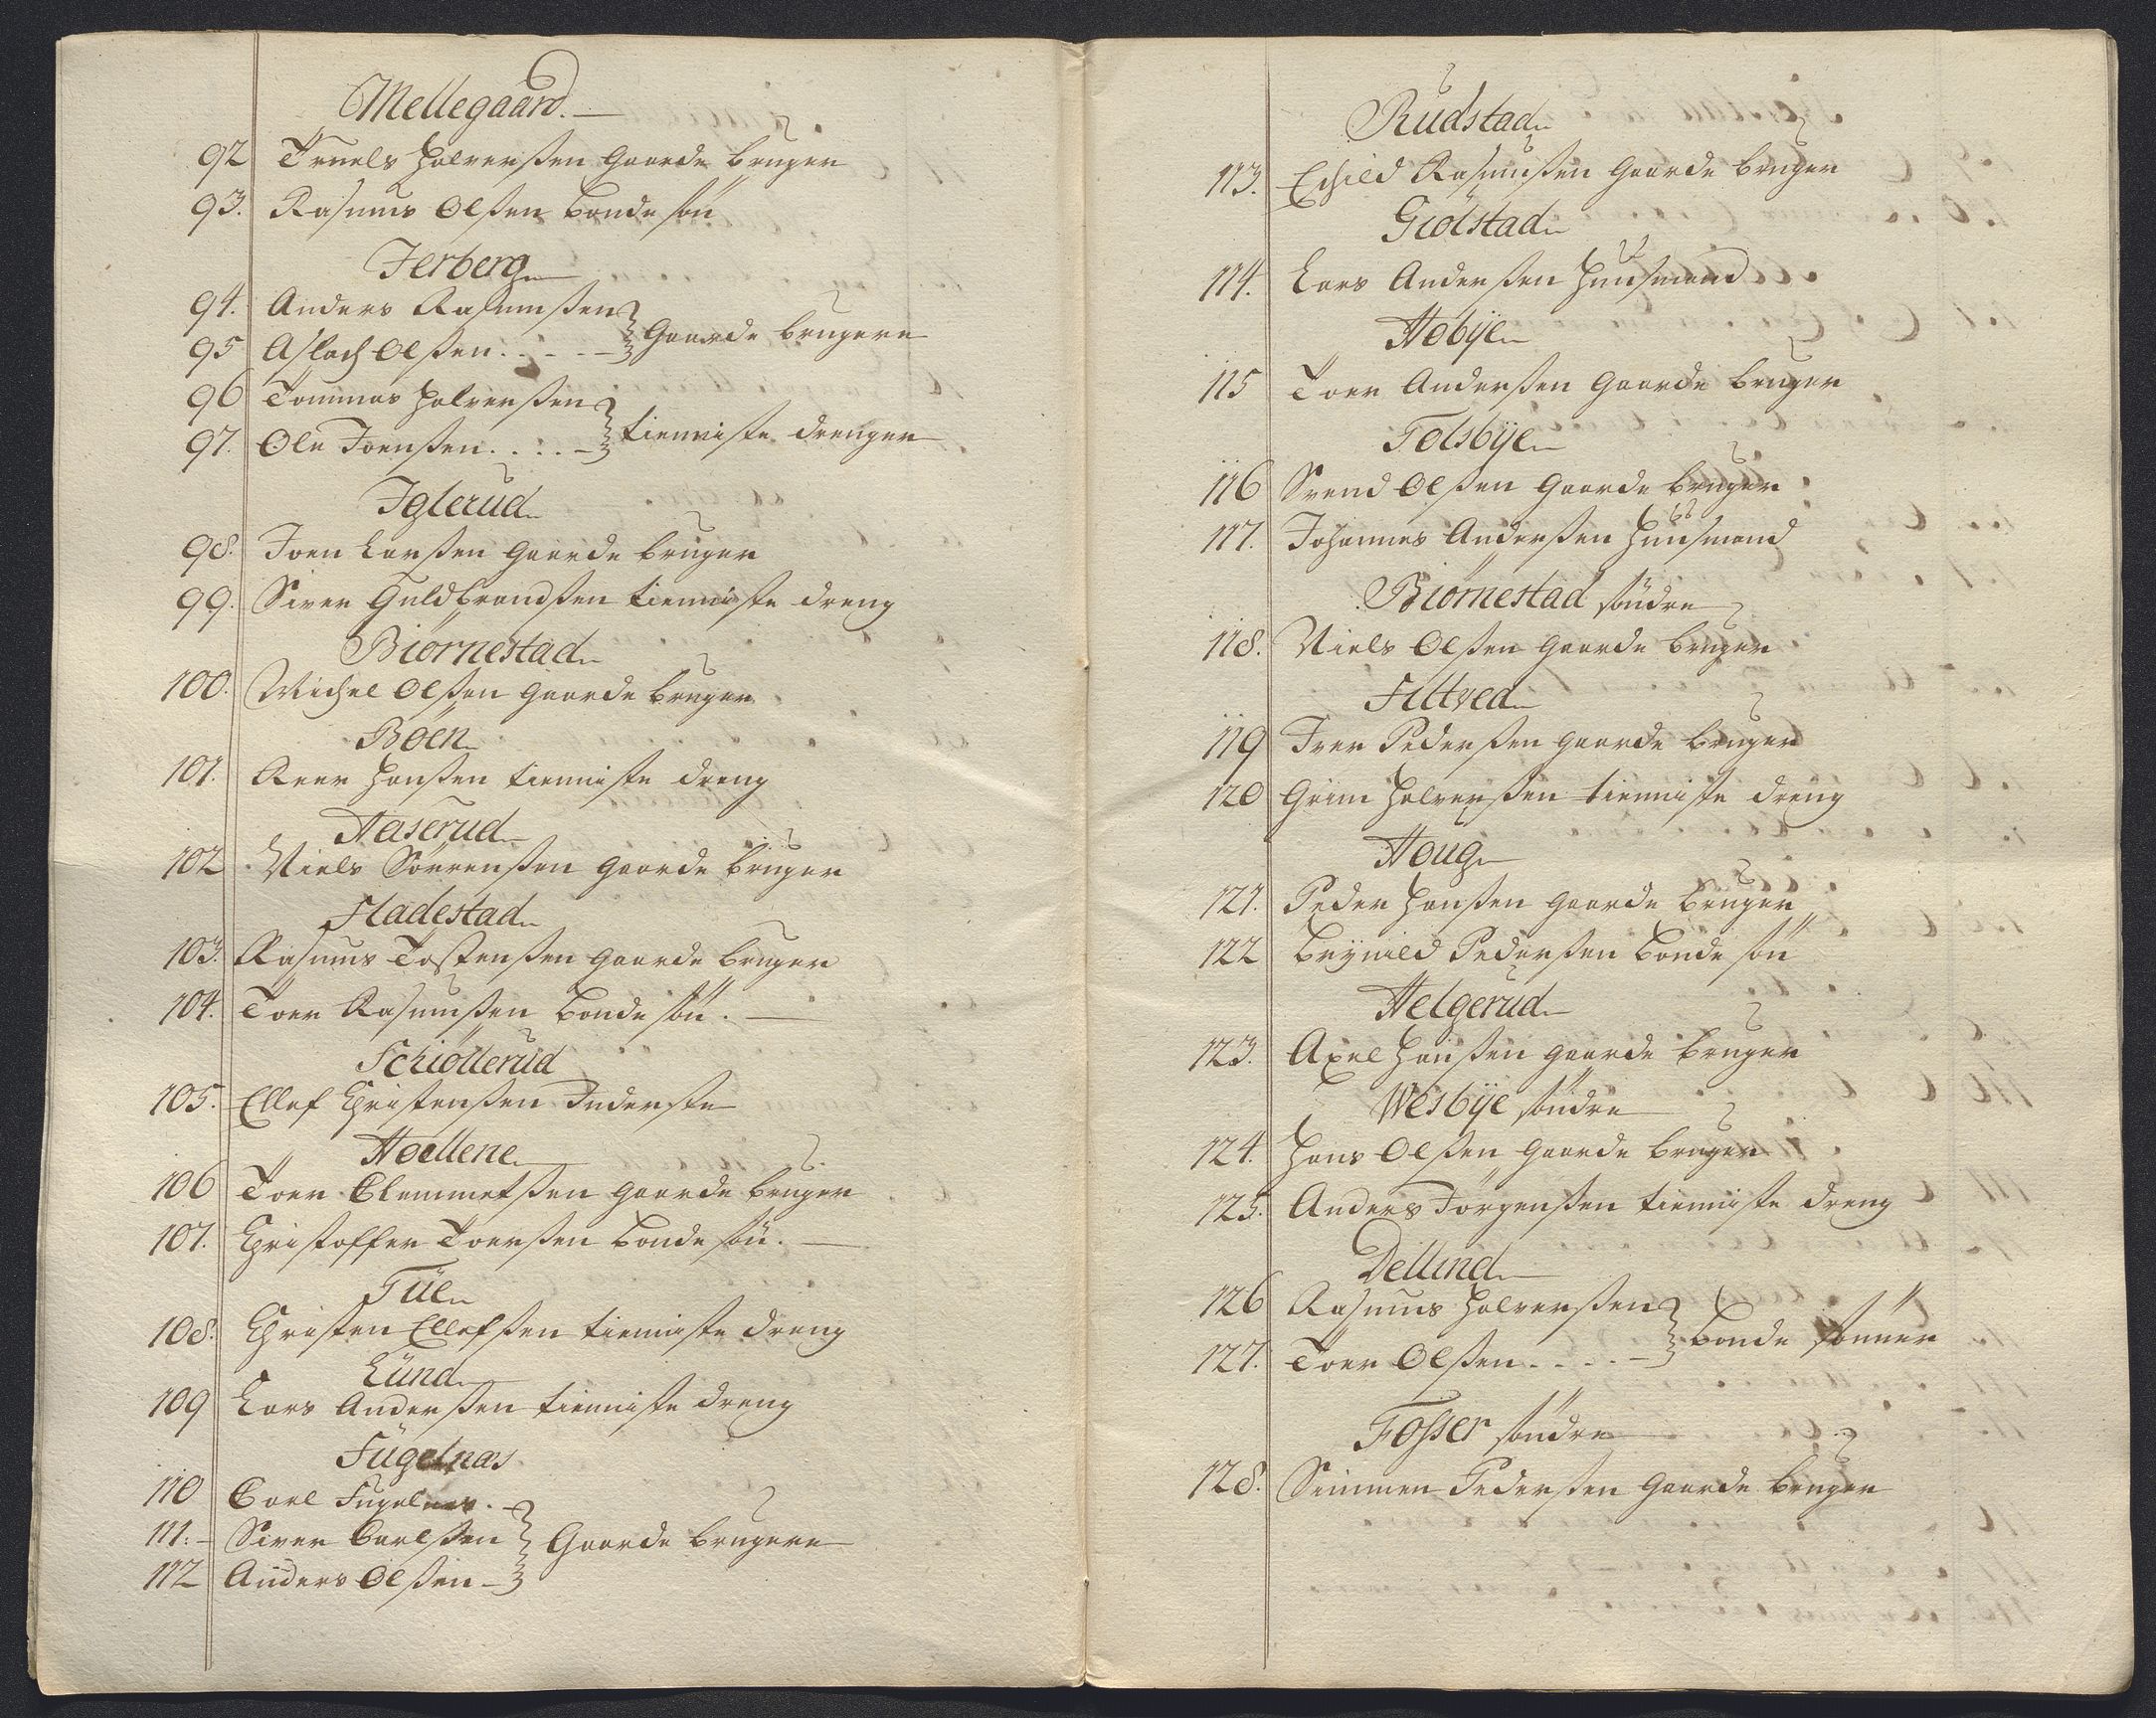 Mellegaard.
92 Truels Halversen Gaarde bruger
93. Rasmus Olsen bonde søn
Jerberg
94. Anders Rasmusen
95 Aslach Olsen . . - - } Gaarde brugere
96 Tommas Halversen
97. Ole Joensen . . : . - } tienniste drenger
Iglerud
98. Joen Larsen Gaarde bruger
99. Siver Guldbrandsen tienniste dreng
Biørnestad
100. Michel Olsen Gaarde bruger
Bøen
101. Aner Hansen tienniste dreng
Haserud
102 Niels Sørrensen Gaarde bruger
Fladestad
103. Rasmus Tostensen Gaarde bruger
104. Toer Rasmusen bonde søn.
Schiøllerud
105. Ellef Christensen Inderste
Hoellene
106 Toer Clemmetsen Gaarde bruger
107. Christoffer Toersen bonde søn.
Tüe
108. Christen Ellefsen tienniste dreng
Lünd
109 Lars Andersen tienniste dreng
Fügelnæs
110 Carl Fugelnæs. -
111. - Siver Carlsen } Gaarde brugere
112 Anders Olsen -
Rüdstad
113. Eschild Rasmusen Gaarde bruger
Giølstad
114. Lars Andersen Huusmand
Høbÿe
115 Toer Andersen Gaarde bruger
Tølsbÿe
116 Svend Olsen Gaarde bruger
117. Johannes Andersen Huusmand
Biørnestad søndre
118. Niels Olsen Gaarde bruger
Filtved
119 Iver Pedersen Gaarde bruger
120 Grim Halversen tienniste dreng
Houg
121. Peder Hansen Gaarde bruger
122 Brynild Pedersen bonde søn
Helgerud
123. Axel Hansen Gaarde bruger
Wesbÿe søndre
124. Hans Olsen Gaarde bruger
125. Anders Jørgensen tienniste dreng
Dellind
126 Rasmus Halversen
127. Toer Olsen - . . . - } bonde sønner
Fosser søndre
128. Simmen Pedersen Gaarde bruger